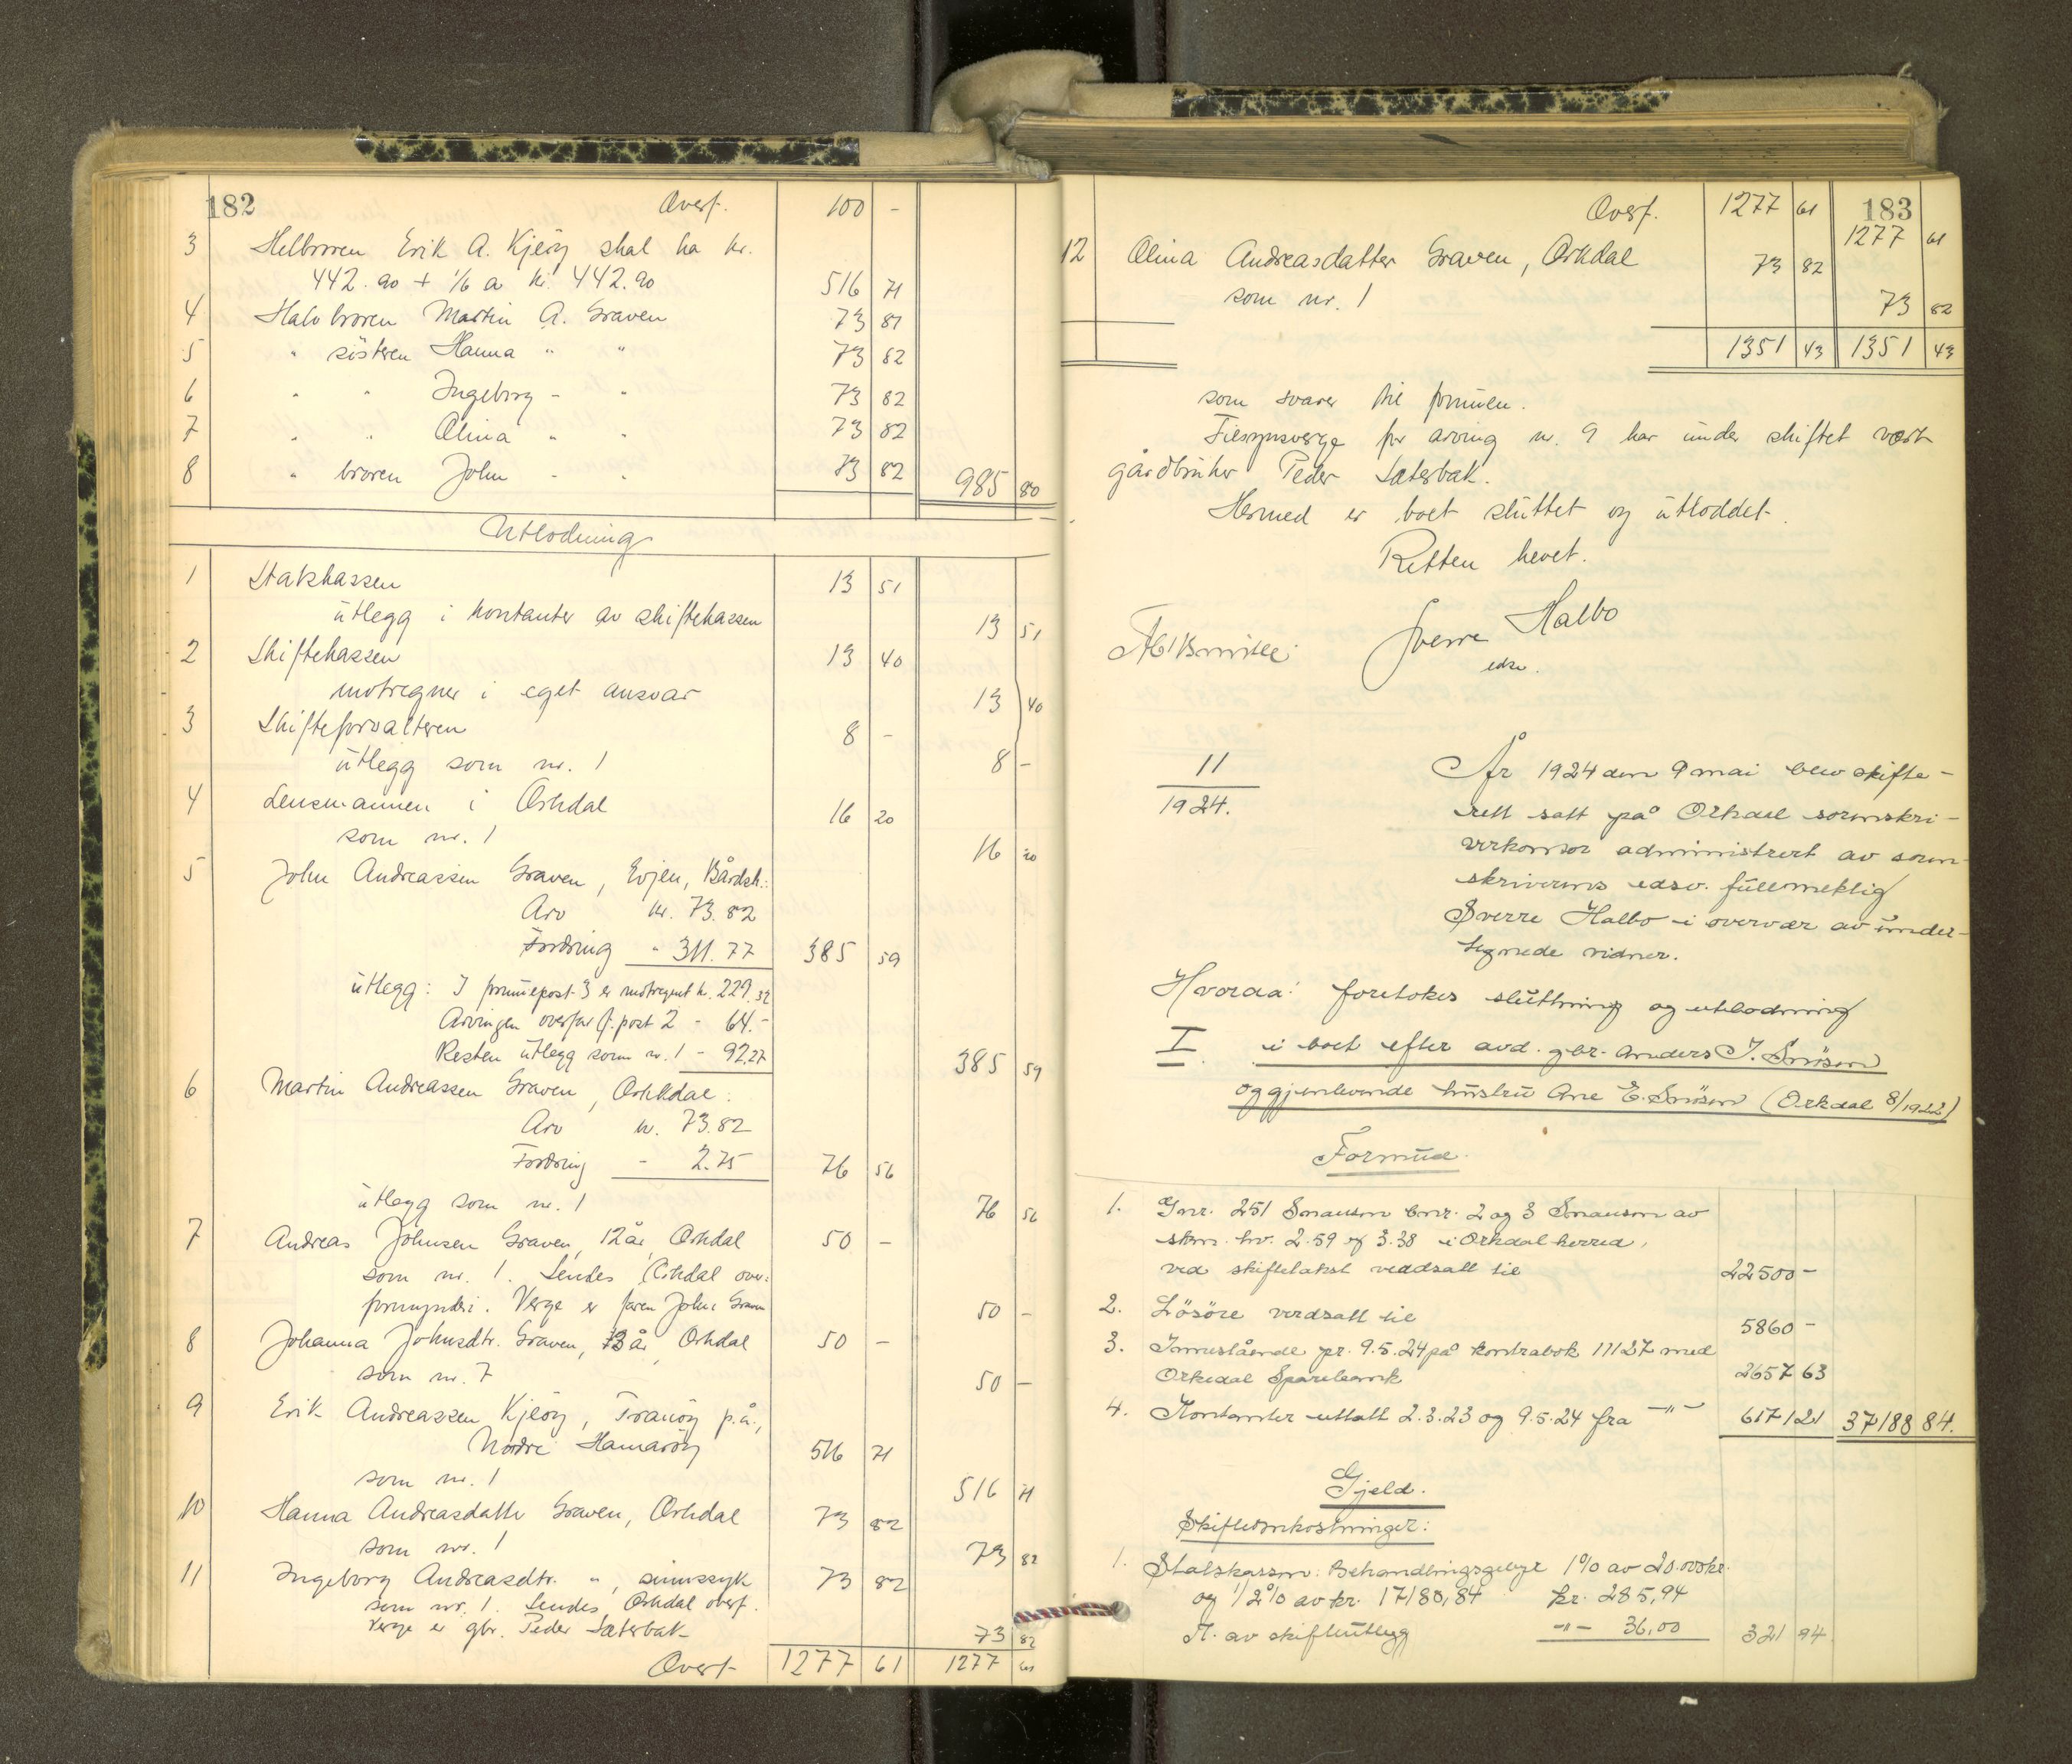 182 Overf. 100 -
3 Helbroren Erik A. Kjeöy skal ha kr.
442.90 + 1/6 a kr. 442.90 516 71
4 Halvbroren Martin A. Graven 73 81
5 " sösteren Hanna " " 73 82
6 " " Ingeborg - " 73 82
7 " " Olina " " 73 82
8 " broren John - " 73 82 985 80
Utlodning
1 Statskassen 13 51
utlegg i kontanter av skiftekassen 13 51
2 Skiftekassen 13 40
motregner i eget ansvar 13 40
3 Skifteforvalteren 8 -
utlegg som nr. 1 8 -
4 Lensmannen i Orkdal 16 20
som nr. 1 16 20
5 John Andreassen Graven, Evjen, Bårdsh.:
Arv kr. 73.82
Fordring " 311.77 385 59
utlegg: I formuepost 3 er motregnet kr. 229.32
Arvingen overtar f. post 2 - 64.-
Resten utlegg som nr. 1 - 92.27 385 59
6 Martin Andreassen Graven, Orkdal:
Arv kr. 73.82
Fordring - 2.75 76 56
utlegg som nr. 1 76 56
7 Andreas Johnsen Graven, 12 år, Orkdal 50 -
som nr. 1. Sendes Orkdal over-
formynderi. Verge er faren John Graven 50 -
8 Johanna Johnsdtr. Graven, 13 år, Orkdal 50 -
som nr. 7 50 -
9 Erik Andreassen Kjeöy, Tranöy p.å.,
Nordre Hamaröy 516 71
som nr. 1 516 71
10 Hanna Andreasdatter Graven, Orkdal 73 82
som nr. 1 73 82
11 Ingeborg Andreasdtr. ", sinnssyk 73 82
som nr. 1. Sendes Orkdal overf.
Verge er gbr. Peder Sæterbak 73 82
Overf 1277 61 1277 61
Overf. 1277 61 183
1277 61
12 Olina Andreasdatter Graven, Orkdal 73 82
som nr. 1 73 82
1351 43 1351 43
som svarer til formuen.
Tilsynsverge for arving nr. 9 har under skiftet vært
gårdbruker Peder Sæterbak.
Hermed er boet sluttet og utloddet.
Retten hevet.
Sverre Halbo
edsv.
11
1924.
År 1924 den 9 mai blev skifte-
rett satt på Orkdal sorenskri-
verkontor administrert av soren-
skriverens edsv. fullmektig
Sverre Halbo i overvær av under-
tegnede vidner.
Hvorda: foretokes slutning og utlodning
I. i boet efter avd. gbr. Anders J. Snösen
og gjenlevende hustru Ane E. Snösen (Orkdal 8/1922)
Formue.
1. Gnr. 251 Snausen bnr. 2 og 3 Snausen av
skm. hv. 2.59 og 3.38 i Orkdal herred,
ved skiftetakst verdsatt til 22500 -
2. Lösöre verdsatt til 5860 -
3. Innestående pr. 9.5.24 på kontrabok 11127 med
Orkedal Sparebank 2657 63
4. Kontanter uttatt 2.3.23 og 9.5.24 fra -"- 6171 21 37188 84.
Gjeld.
Skifteomkostninger:
1. Statskassen: Behandlingsgebyr 1% av 20.000 kr.
og 1/2% av kr. 17180,84 kr. 285,94
St. av skifteutlegg -"- 36,00 321 94